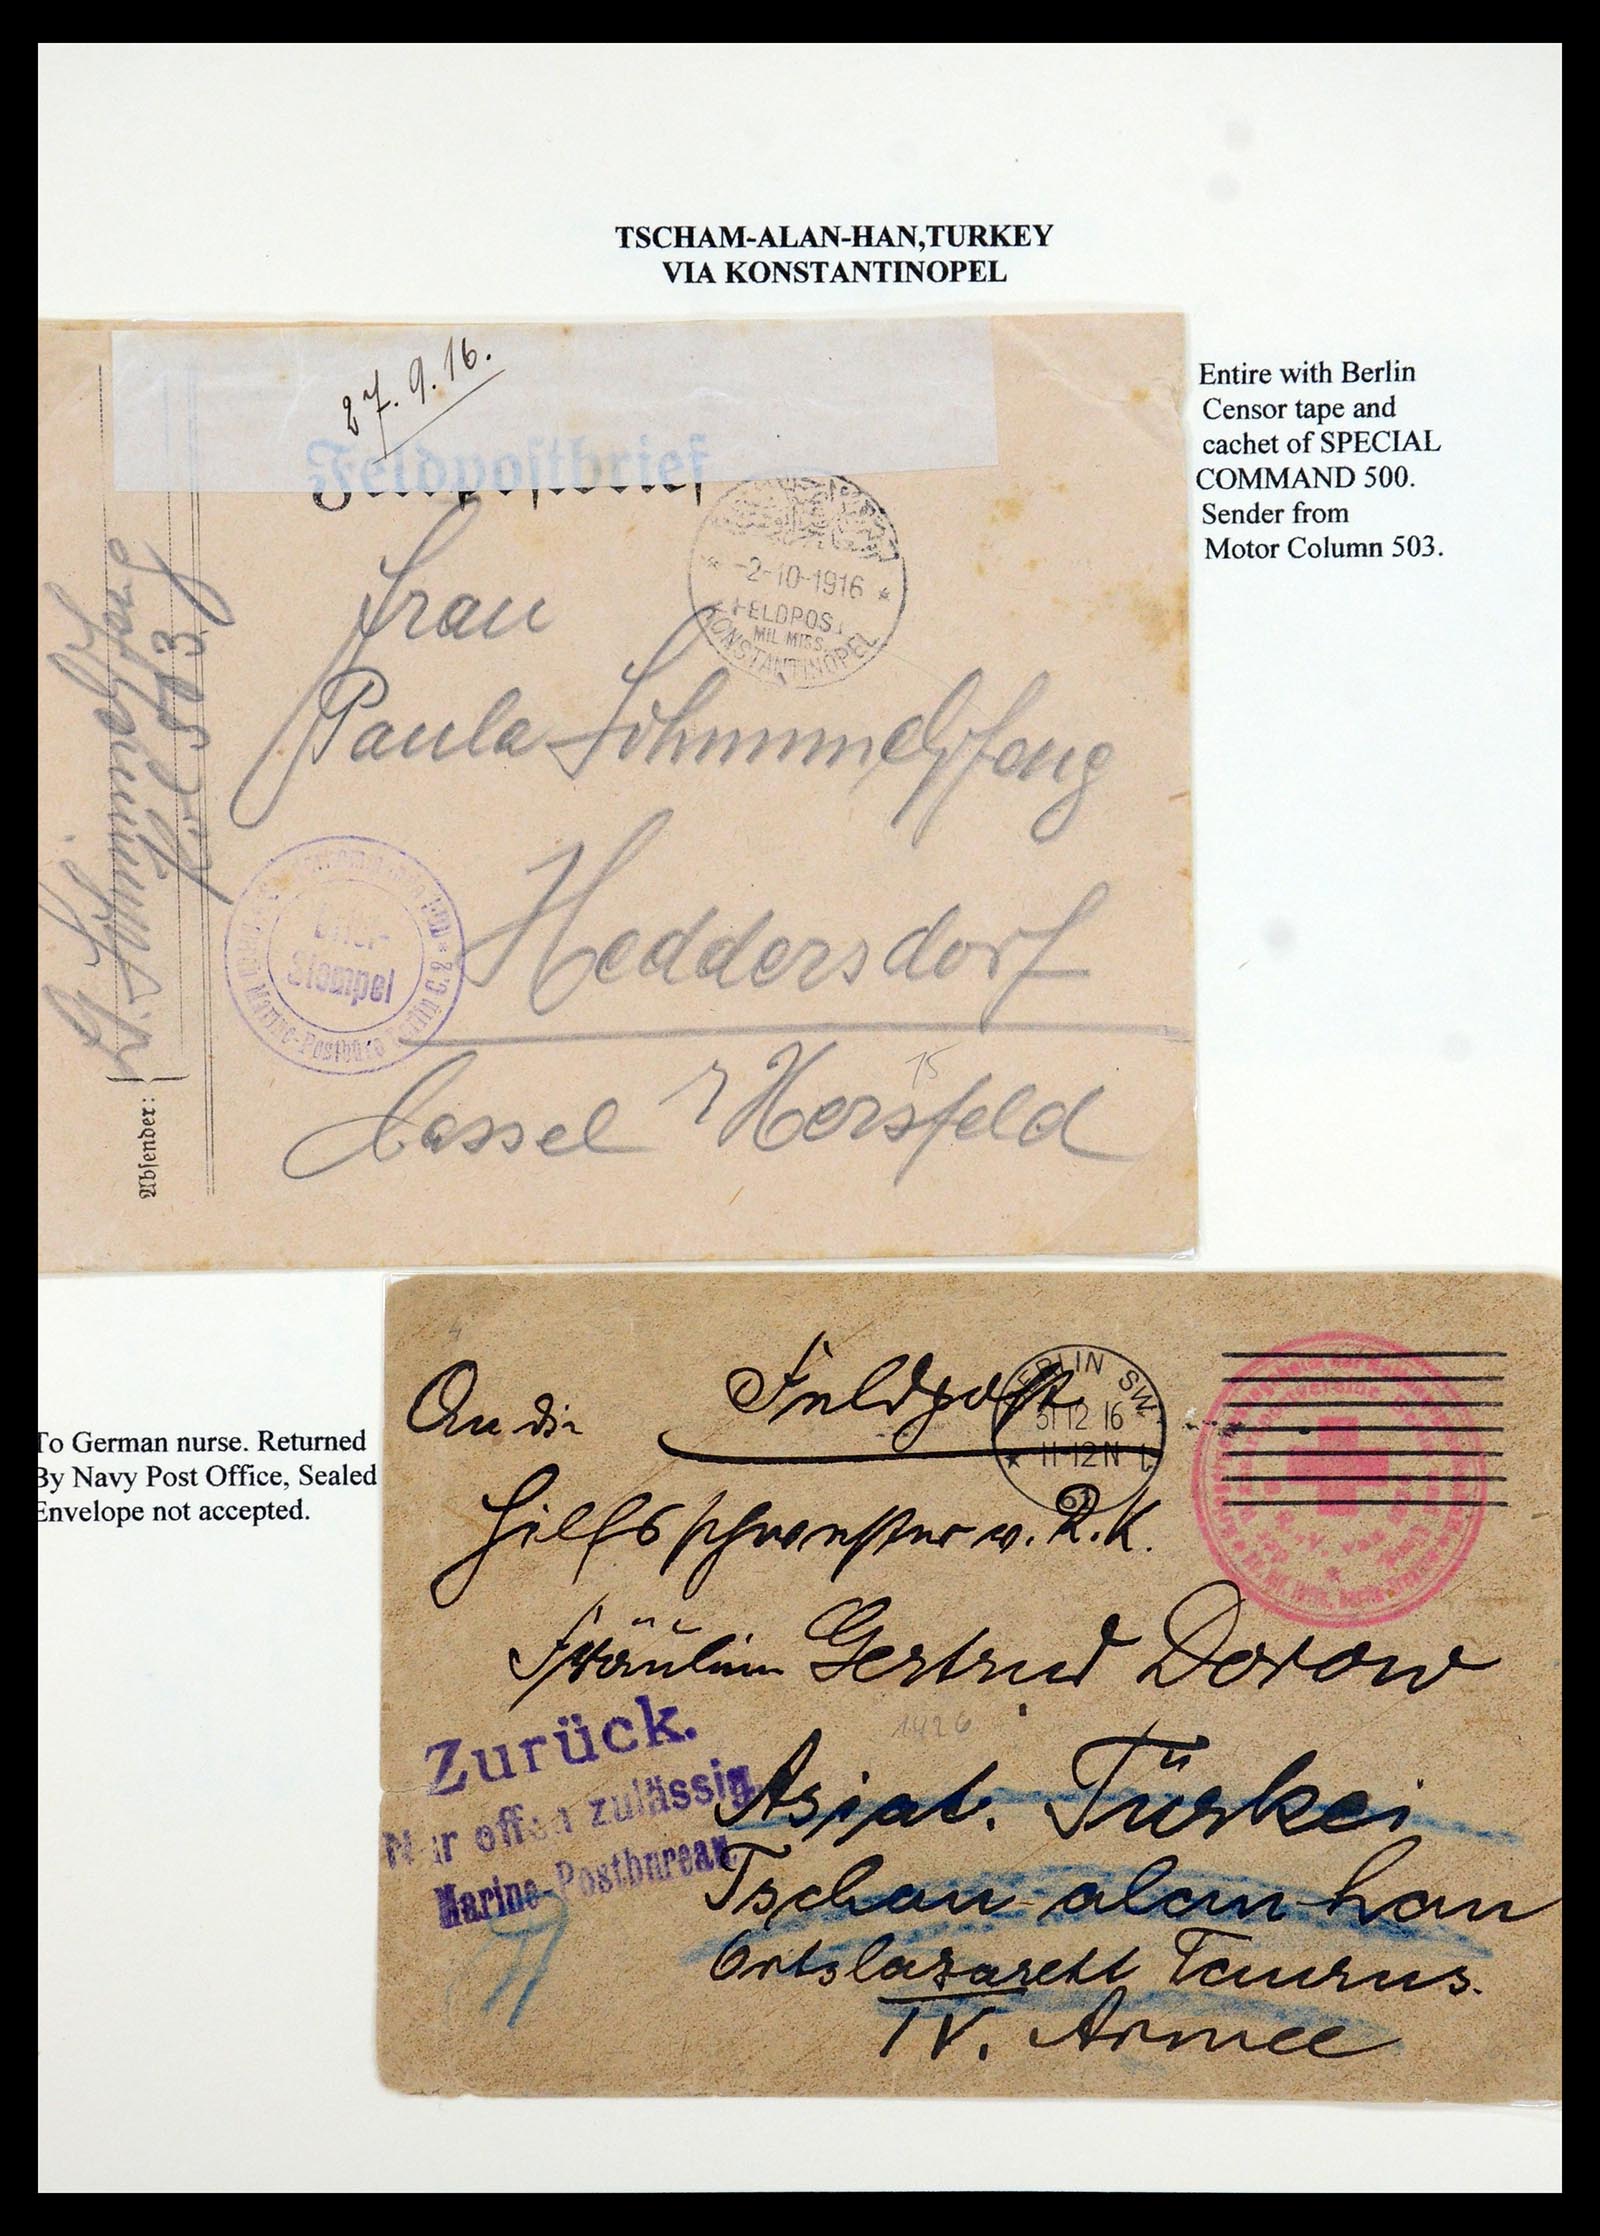 TSCHAM-ALAN-HAN,TURKEY
VIA KONSTANTINOPEL
27.9.16.
Feldpostbrief
-2-10-1916
FELDPOST
MIL. MISS.
KONSTANTINOPEL
Frau
Paula Schimmelpfeng
Heddersdorf
Cassel Hersfeld
15
503
Absender:
Brief-
Stempel
Marine-Postbüro Berlin C.2
Entire with Berlin
Censor tape and
cachet of SPECIAL
COMMAND 500.
Sender from
Motor Column 503.
To German nurse. Returned
By Navy Post Office, Sealed
Envelope not accepted.
Feldpost
BERLIN SW
31 12 16
11-12 N
An die
Hilfsschwester v. R. K.
Fräulein Gertrud Dorow
1426
Zurück.
Nur offen zulässig.
Marine-Postbureau
Asiat. Türkei
Tschau alan han
Ortslazarett Taurus.
IV. Armee